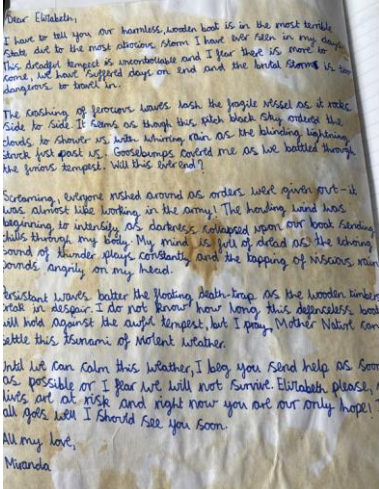 Dear Elizabeth,
I have to tell you our harmless, wooden boat is in the most terrible
state due to the most atrocious storm I have ever seen in my days.
This dreadful tempest is uncontrollable and I fear there is more to
come, we have suffered days on end and the brutal storm is too
dangerous to travel in.
The crashing of ferocious waves lash the fragile vessel as it rocks
side to side. It seems as though this pitch black sky ordered the
clouds to shower us with whirring rain as the blinding lightning
struck just past us. Goosebumps covered me as we battled through
the furious tempest. Will this ever end?
Screaming, everyone rushed around as orders were given out – it
was almost like working in the army! The howling wind was
beginning to intensify as darkness collapsed upon our boat sending
chills through my body. My mind is full of dread as the echoing
sound of thunder plays constantly and the tapping of viscous rain
pounds angrily on my head.
Persistant waves batter the floating death-trap as the wooden timbers
creak in despair. I do not know how long this defenceless boat
will hold against the awful tempest, but I pray Mother Nature can
settle this tsunami of violent weather.
Until we can calm this weather, I beg you send help as soon
as possible or I fear we will not survive. Elizabeth please,
lives are at risk and right now you are our only hope!
all goes well I should see you soon.
All my love,
Miranda